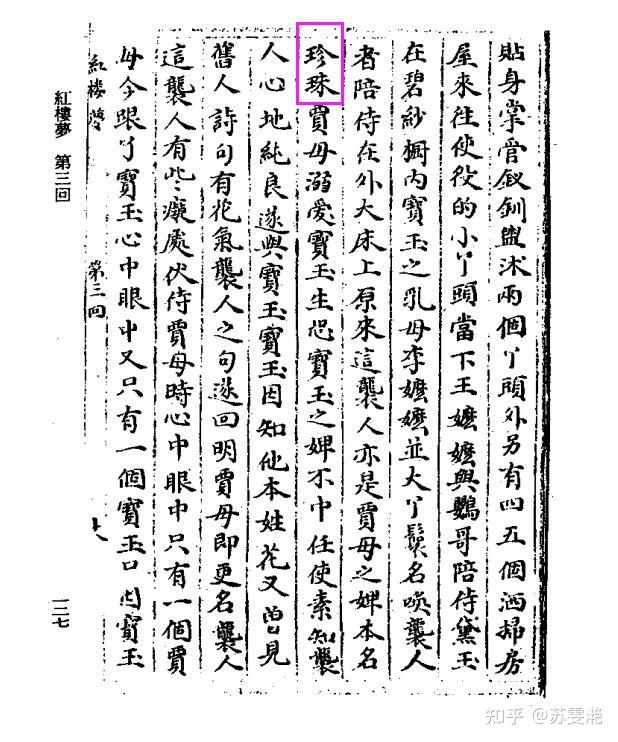 貼身掌管釵釧盥沐兩個丫頭外另有四五個洒掃房
屋來往使役的小丫頭當下王嬤嬤與鸚哥陪侍黛玉
在碧紗橱内寶玉之乳母李嬤嬤並大丫鬟名喚襲人
者陪侍在外大床上原來這襲人亦是賈母之婢本名
珍珠賈母溺愛寶玉生恐寶玉之婢不中任使素知襲
人心地純良遂與寶玉寶玉因知他本姓花又曽見
舊人詩句有花氣襲人之句遂回明賈母即更名襲人
這襲人有些癡處伏侍賈母時心中眼中只有一個賈
母今跟了寶玉心中眼中又只有一個寶玉只因寶玉
紅樓夢 第三回
紅樓夢 第三回
一二七
知乎 @苏雯滟